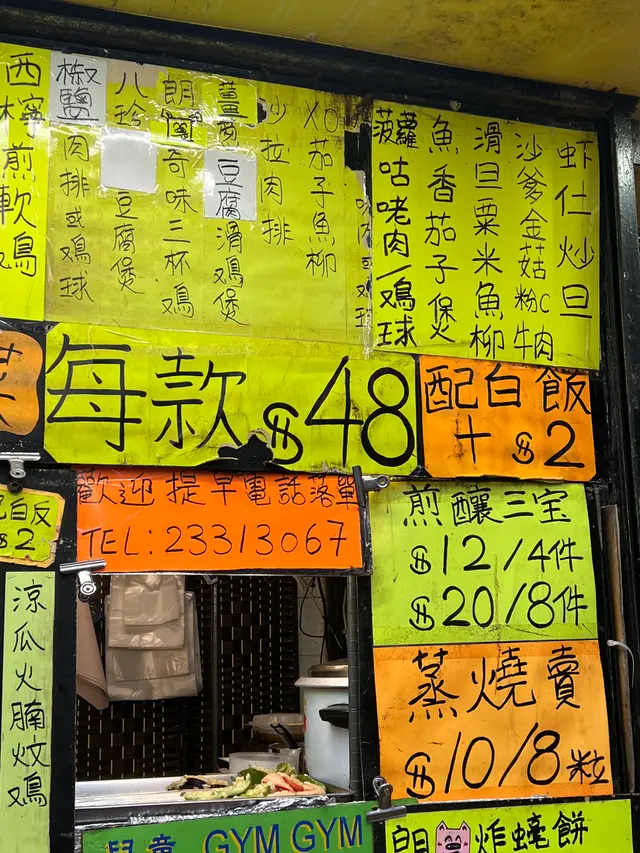 西檸煎軟鳮
椒鹽肉排或鳮球
八珍豆腐煲
朗奇味三杯鳮
薑豆腐滑鳮煲
沙拉肉排
XO茄子魚柳
菠蘿咕咾肉/鳮球
魚香茄子煲
滑旦粟米魚柳
沙爹金菇粉C牛肉
虾仁炒旦
菜
每款$48
配白飯
+$2
配白飯
$2
歡迎提早電話落單
TEL:23313067
煎釀三宝
$12/4件
$20/8件
涼瓜火腩炆鳮
蒸燒賣
$10/8粒
兒童 GYM GYM
朗 炸蠔餅